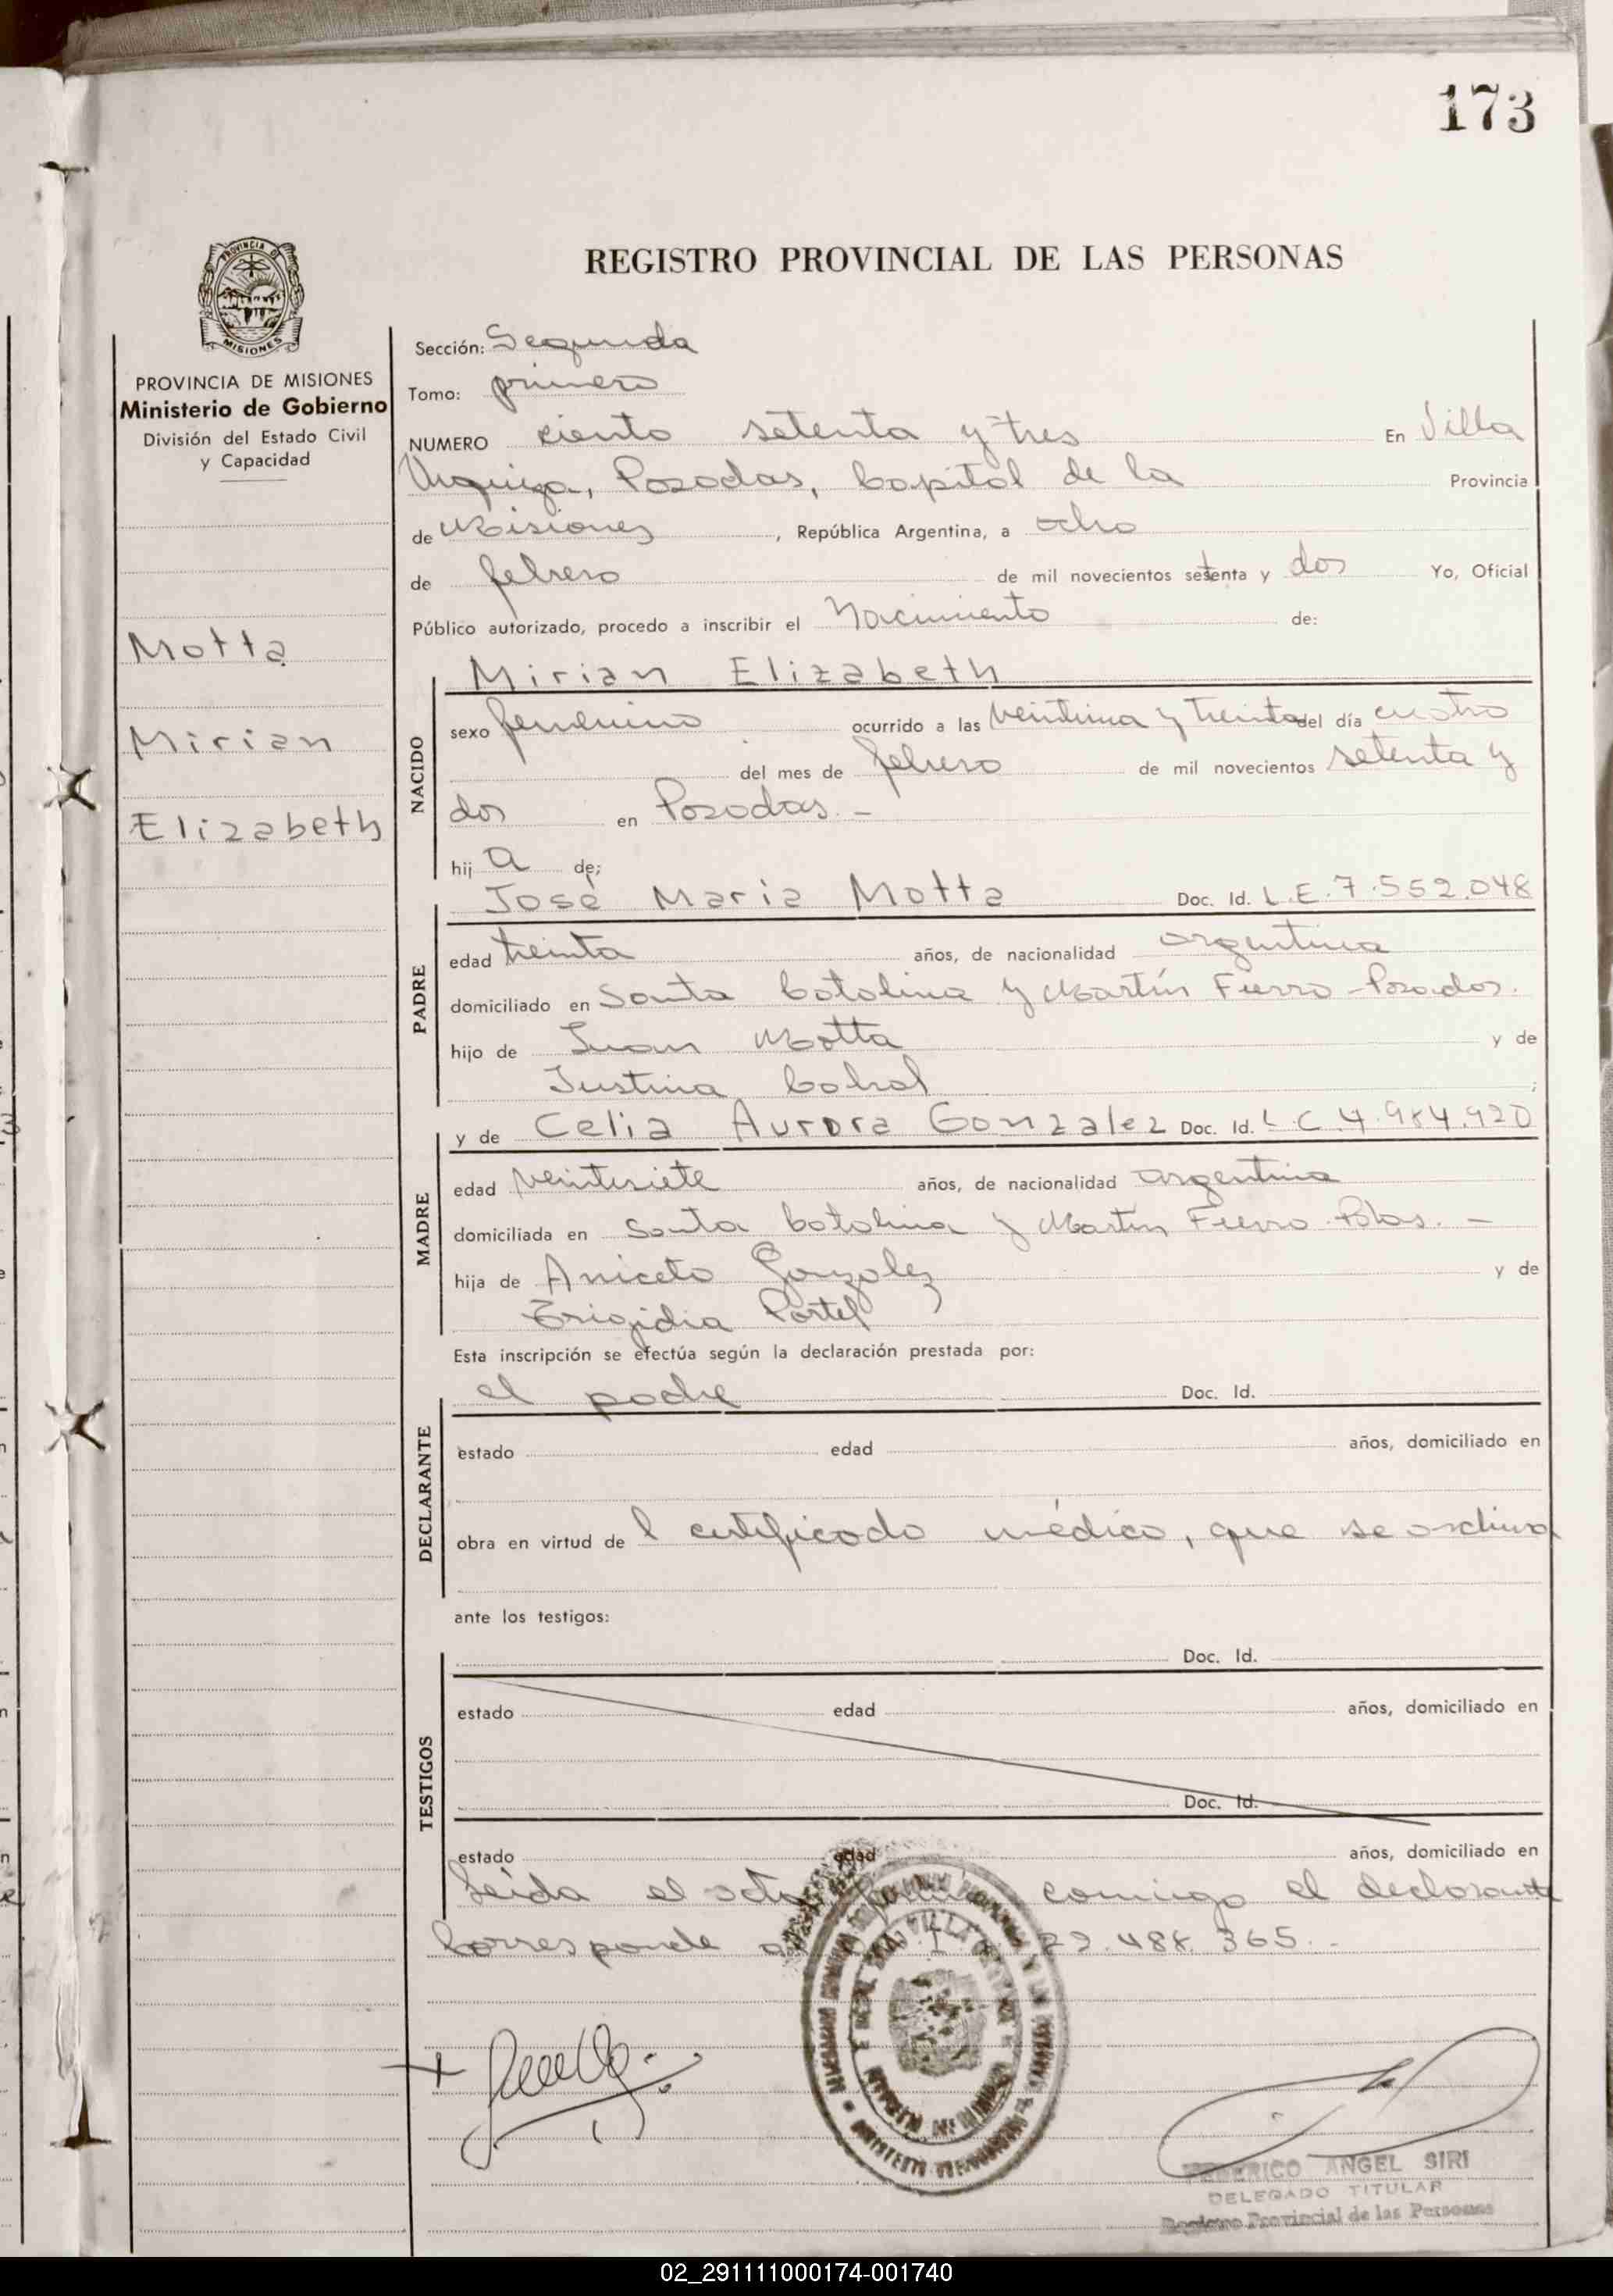 173
REGISTRO PROVINCIAL DE LAS PERSONAS
MISIONES
PROVINCIA DE MISIONES
Ministerio de Gobierno
División del Estado Civil
y Capacidad
Motta
Mirian
Elizabeth
Sección: Segunda
Tomo: primero
NUMERO ciento setenta y tres En Villa
Urquiza, Posadas, Capital de la Provincia
de Misiones, República Argentina, a ocho
de febrero de mil novecientos setenta y dos Yo, Oficial
Público autorizado, procedo a inscribir el Nacimiento de:
Mirian Elizabeth
NACIDO
sexo femenino ocurrido a las veintiuna y treinta del día cuatro
del mes de febrero de mil novecientos setenta y
dos en Posadas. -
hija de;
José Maria Motta Doc. Id. L.E. 7.552.048
PADRE
edad treinta años, de nacionalidad argentina
domiciliado en Santa Catalina y Martín Fierro - Posadas.
hijo de Juan Motta y de
Justina Cabral ;
y de Celia Aurora Gonzalez Doc. Id. L.C. 4.984.920
MADRE
edad veintisiete años, de nacionalidad argentina
domiciliada en Santa Catalina y Martín Fierro - Pdas. -
hija de Aniceto Gonzalez y de
Brigidia Portel
Esta inscripción se efectúa según la declaración prestada por:
el padre Doc. Id.
DECLARANTE
estado edad años, domiciliado en
obra en virtud de l certificado médico, que se archiva
ante los testigos:
Doc. Id.
TESTIGOS
estado edad años, domiciliado en
Doc. Id.
estado edad años, domiciliado en
Leida el acta conmigo el declarante
Corresponde 22.488.365.-
FEDERICO ANGEL SIRI
DELEGADO TITULAR
Registro Provincial de las Personas
02_291111000174-001740